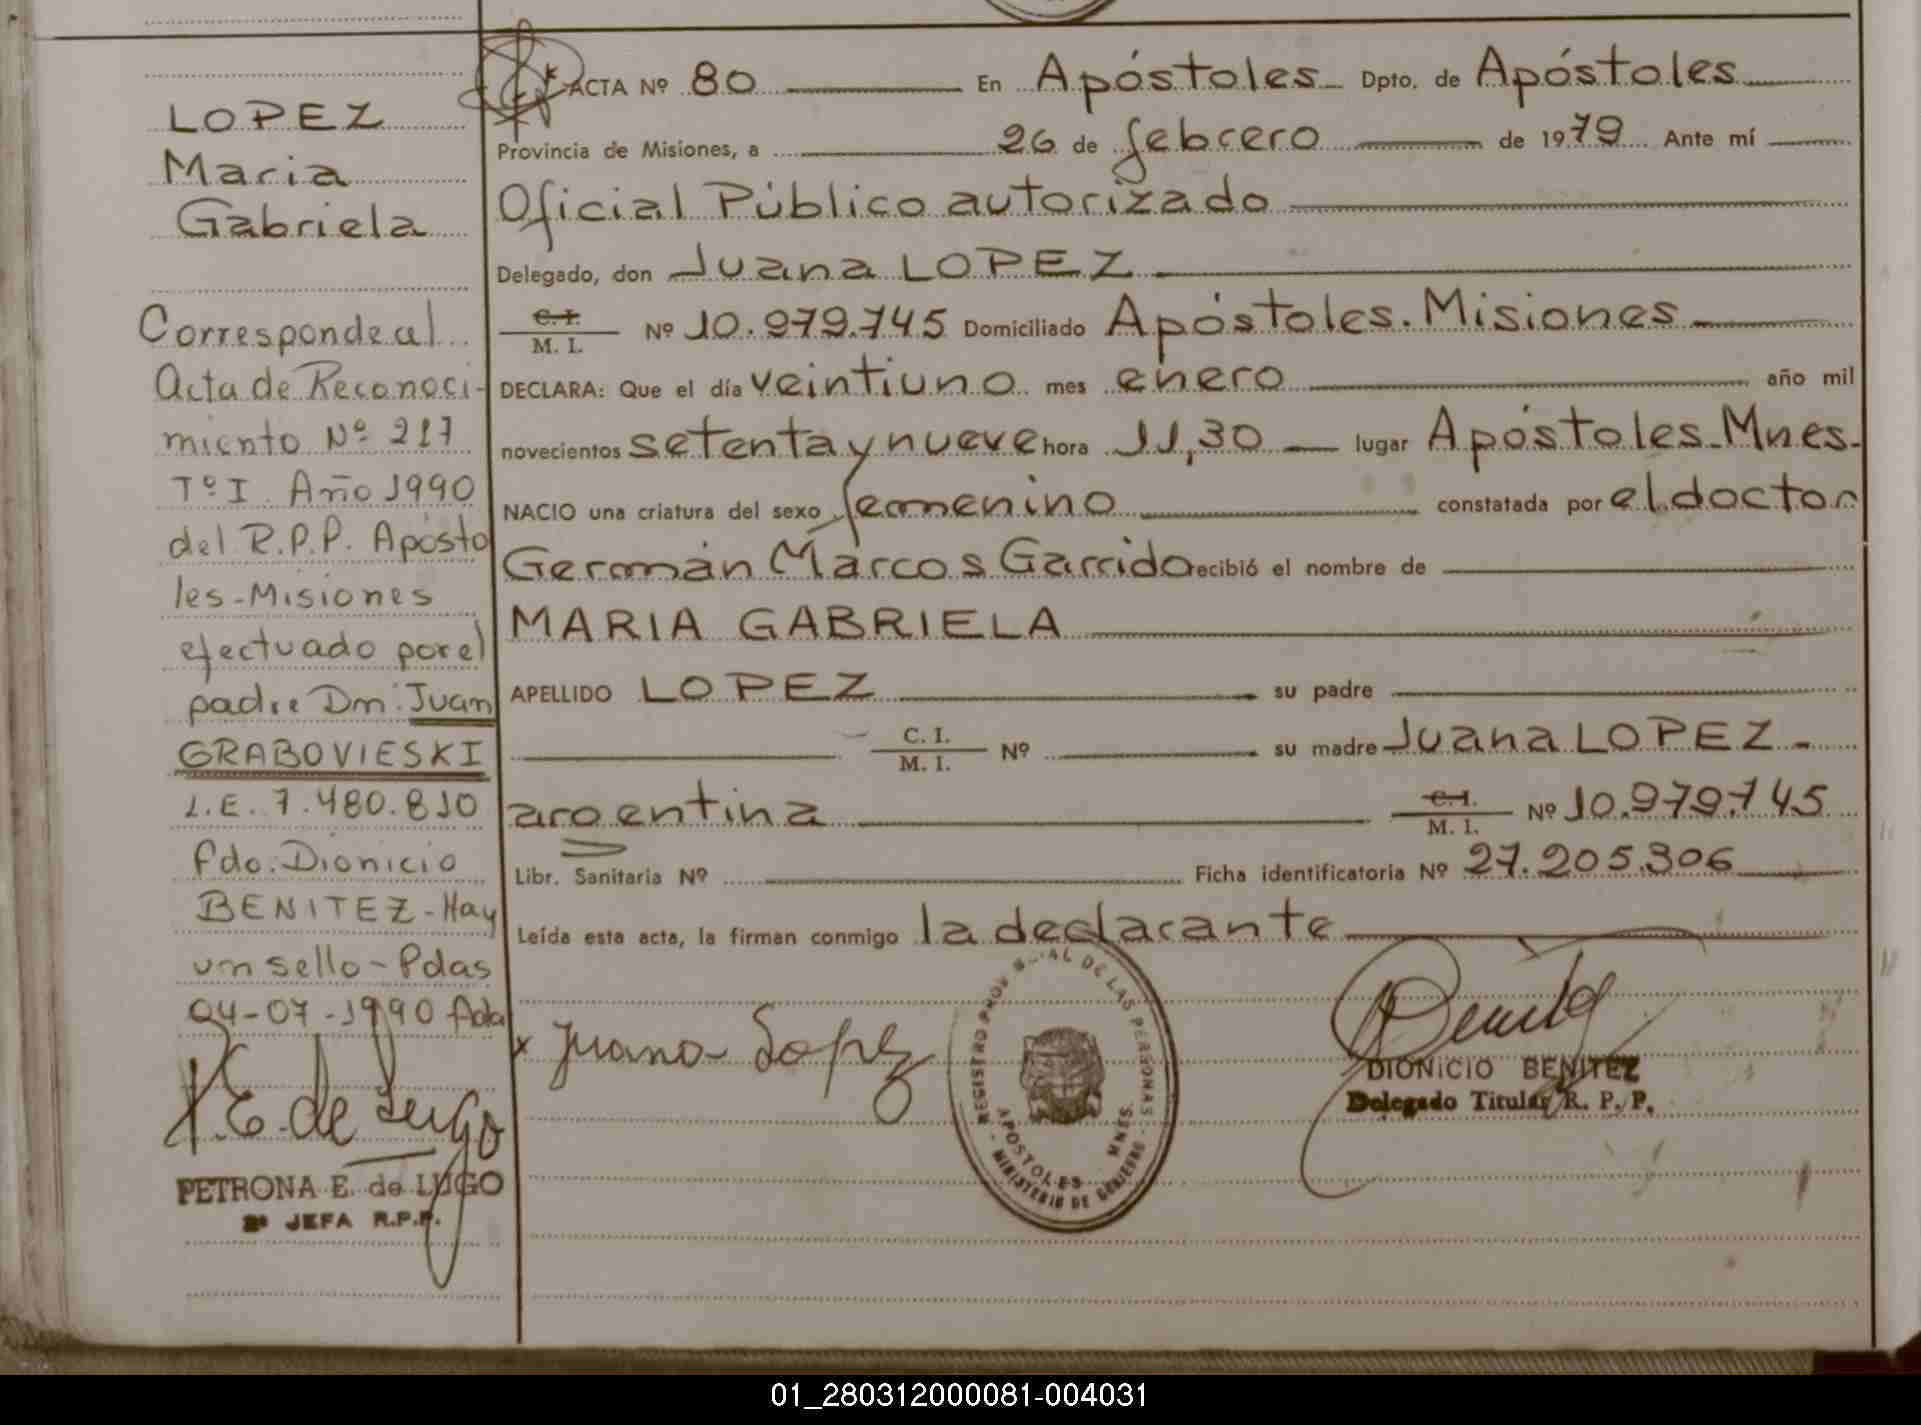 LOPEZ
Maria
Gabriela
Corresponde al
Acta de Reconoci-
miento Nº 217
Tº I. Año 1990
del R.P.P. Aposto
les-Misiones
efectuado por el
padre Dn: Juan
GRABOVIESKI
L.E. 7.480.810
fdo. Dionicio
BENITEZ-Hay
un sello-Pdas
04-07-1990
P.E. de Lugo
PETRONA E. de LUGO
2ª JEFA R.P.P.
ACTA Nº 80 En Apóstoles Dpto. de Apóstoles
Provincia de Misiones, a 26 de febrero de 1979 Ante mí
Oficial Público autorizado
Delegado, don Juana LOPEZ
C. I.
M. I. Nº 10.979.745 Domiciliado Apóstoles. Misiones
DECLARA: Que el día veintiuno mes enero año mil
novecientos setenta y nueve hora 11,30 lugar Apóstoles-Mnes-
NACIO una criatura del sexo femenino constatada por el doctor
Germán Marcos Garrido recibió el nombre de
MARIA GABRIELA
APELLIDO LOPEZ su padre
C. I.
M. I. Nº su madre Juana LOPEZ
argentina C. I.
M. I. Nº 10.979.745
Libr. Sanitaria Nº Ficha identificatoria Nº 27.205.306
Leída esta acta, la firman conmigo la declarante
x Juana Lopez
REGISTRO PROVINCIAL DE LAS PERSONAS
APOSTOLES MNES.
- MINISTERIO DE GOBIERNO -
Benitez
DIONICIO BENITEZ
Delegado Titular R. P. P.
01_280312000081-004031